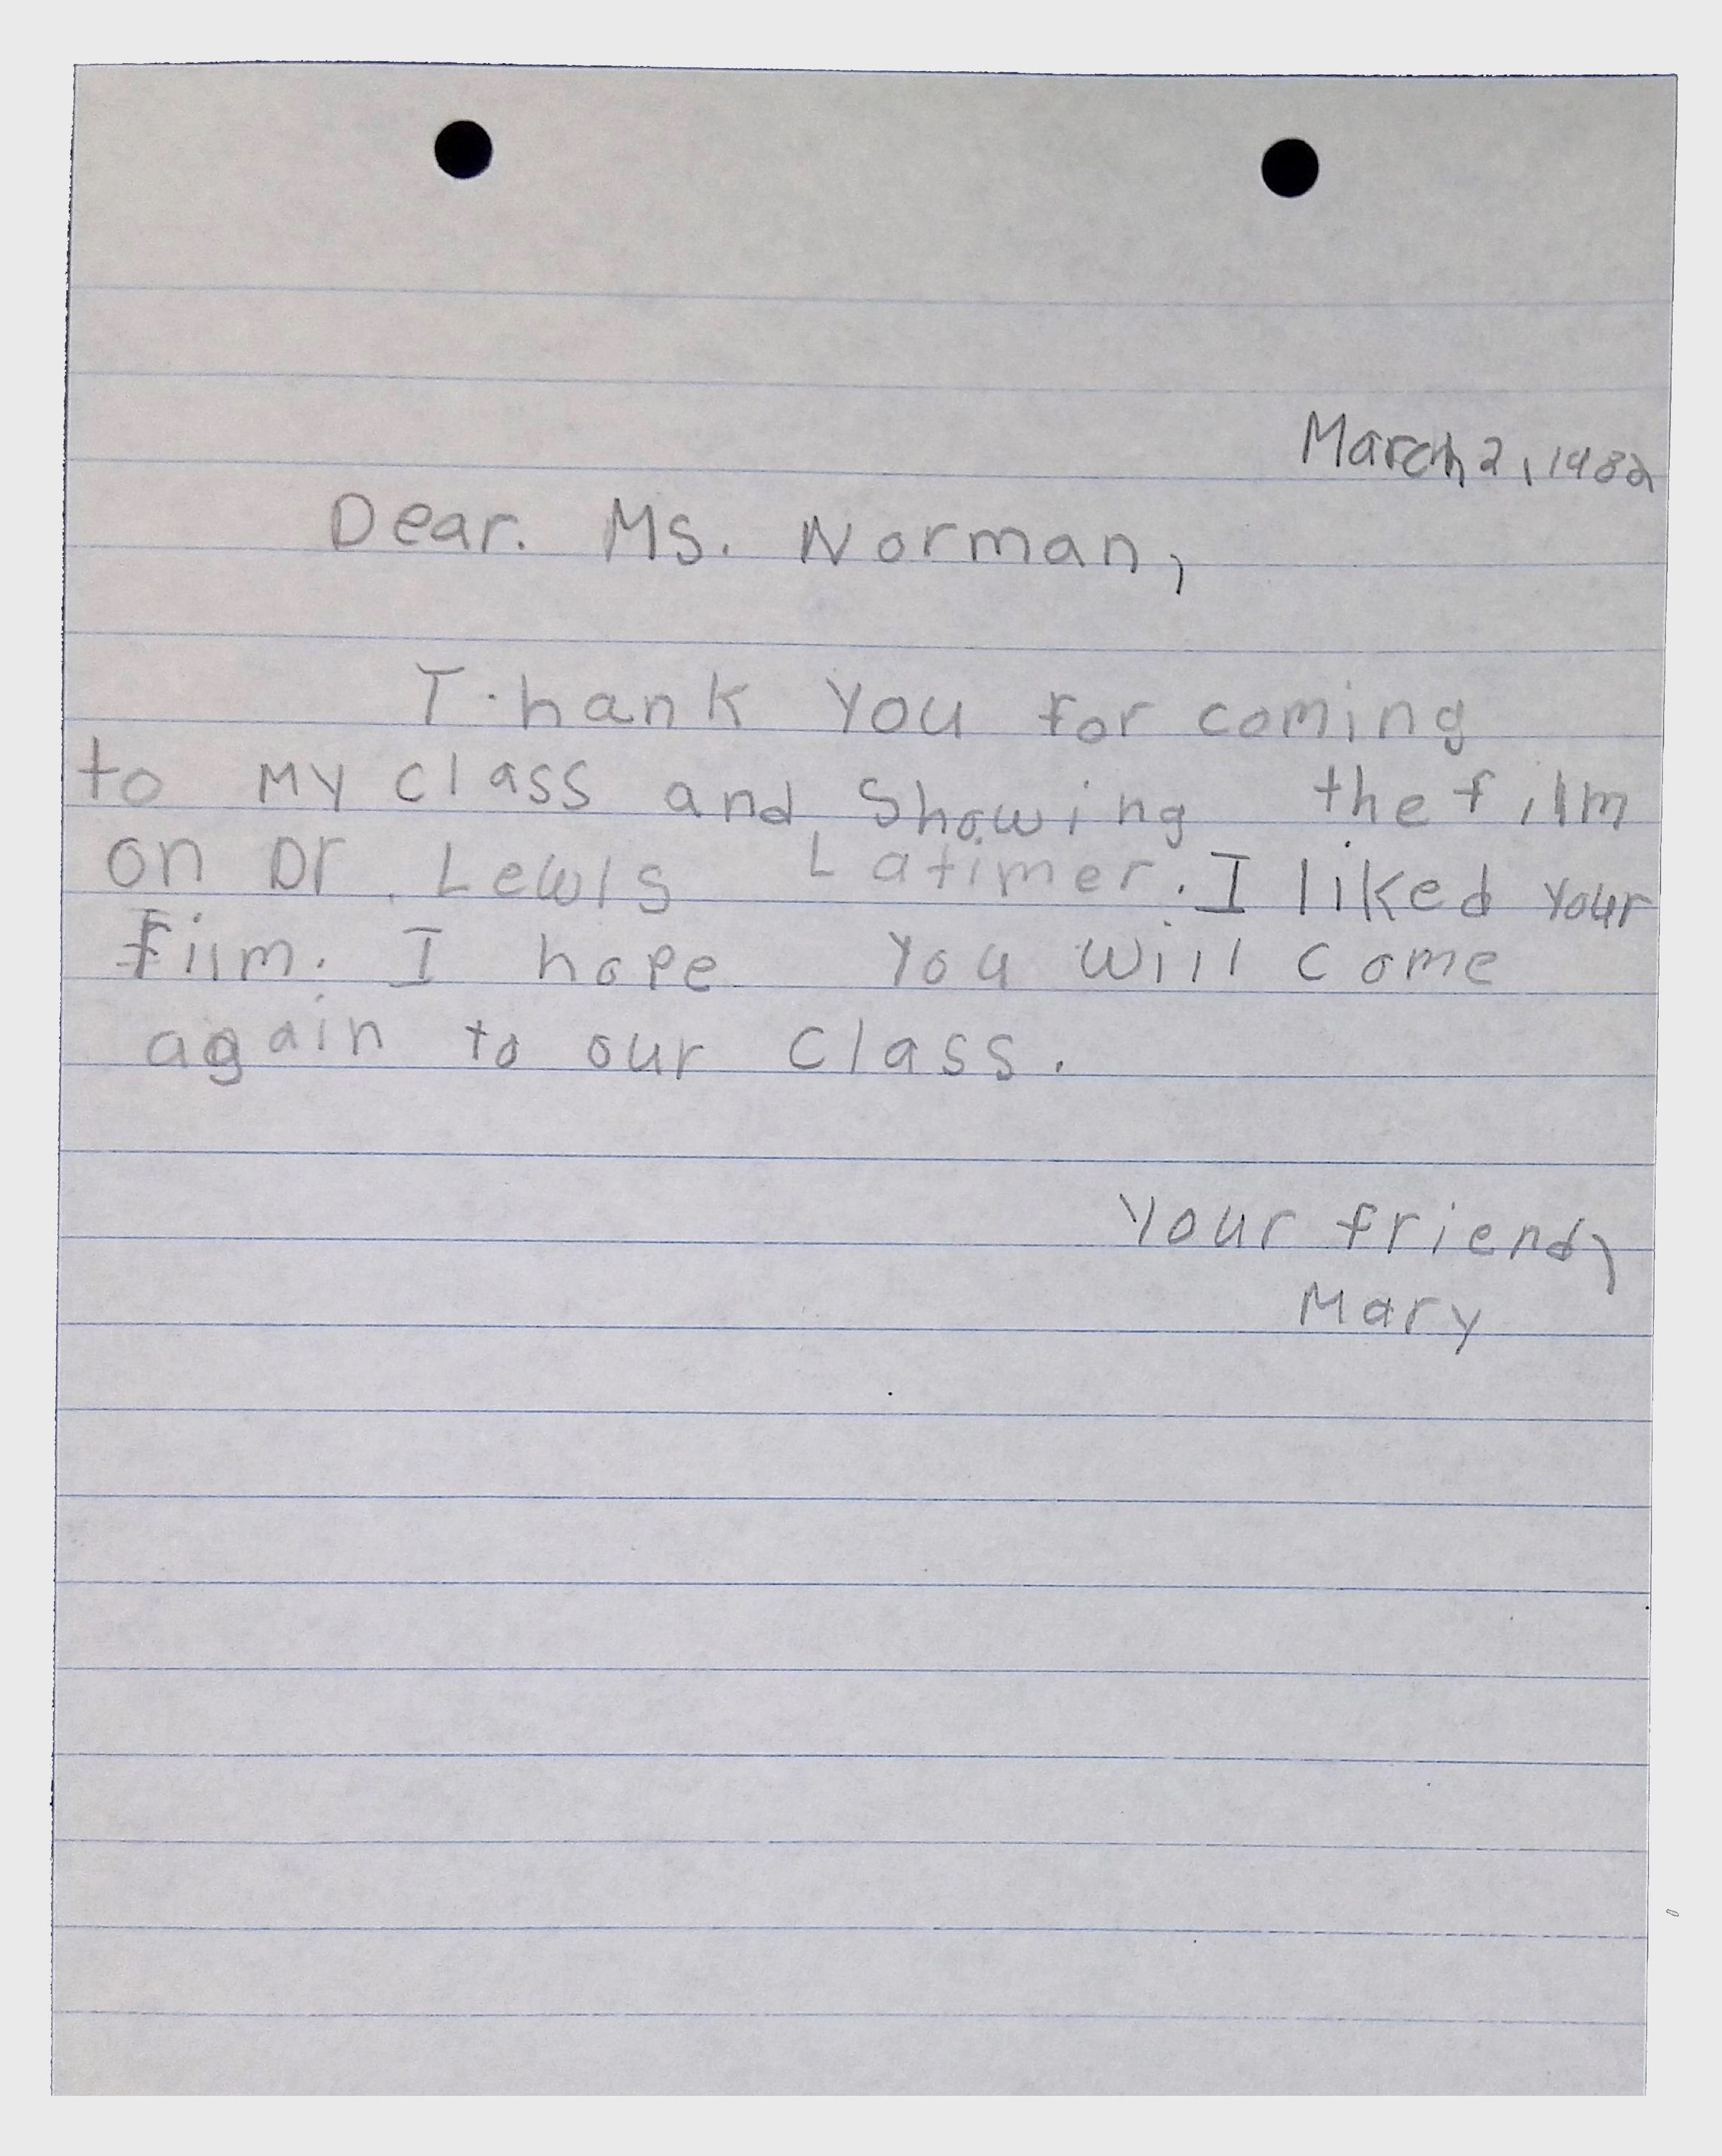 March 2, 1982
Dear. Ms. Norman,
Thank you for coming
to my class and showing the film
on Dr. Lewis Latimer. I liked your
film. I hope you will come
again to our class.
Your friend,
Mary